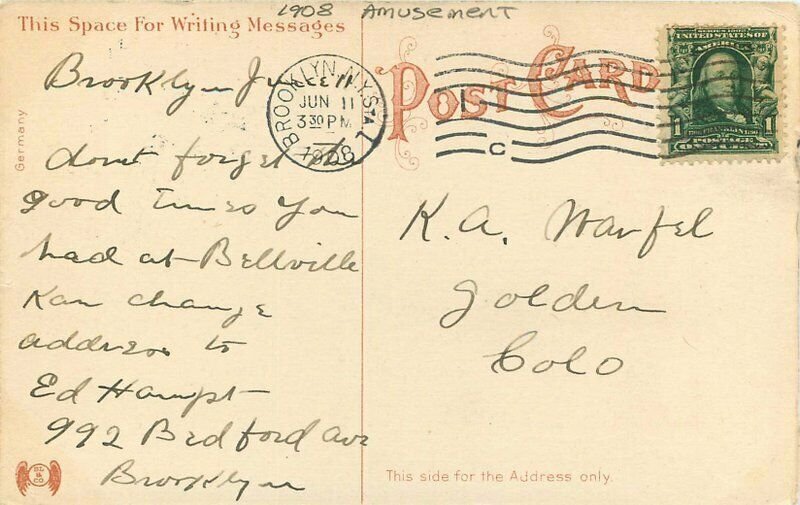 1908 Amusement
This Space For Writing Messages
POST CARD
SERIES 1902
UNITED STATES OF
AMERICA
1 1
POSTAGE
ONE CENT
BROOKLYN, N.Y. STA. L
JUN 11
3 30 PM
1908
C
Germany
Brooklyn
dont forget the
good times you
had at Bellville
Kan change
address to
Ed Hampt
992 Bedford ave
Brooklyn
K. A. Warfel
Golden
Colo
BL & CO
This side for the Address only.